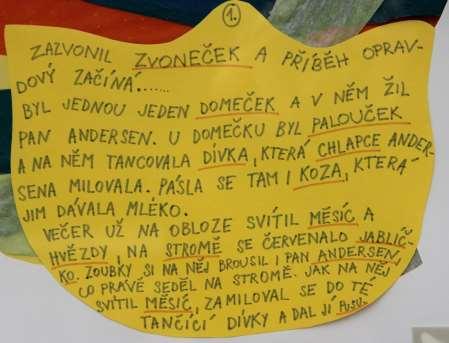 1.
ZAZVONIL ZVONEČEK A PŘÍBĚH OPRAV-
DOVÝ ZAČÍNÁ......
BYL JEDNOU JEDEN DOMEČEK A V NĚM ŽIL
PAN ANDERSEN. U DOMEČKU BYL PALOUČEK
A NA NĚM TANCOVALA DÍVKA, KTERÁ CHLAPCE ANDER-
SENA MILOVALA. PÁSLA SE TAM I KOZA, KTERÁ
JIM DÁVALA MLÉKO.
VEČER UŽ NA OBLOZE SVÍTIL MĚSÍC A
HVĚZDY, NA STROMĚ SE ČERVENALO JABLÍČ-
KO. ZOUBKY SI NA NĚJ BROUSIL I PAN ANDERSEN,
CO PRÁVĚ SEDĚL NA STROMĚ. JAK NA NĚJ
SVÍTIL MĚSÍC, ZAMILOVAL SE DO TÉ
TANČÍCÍ DÍVKY A DAL JÍ PUSU.